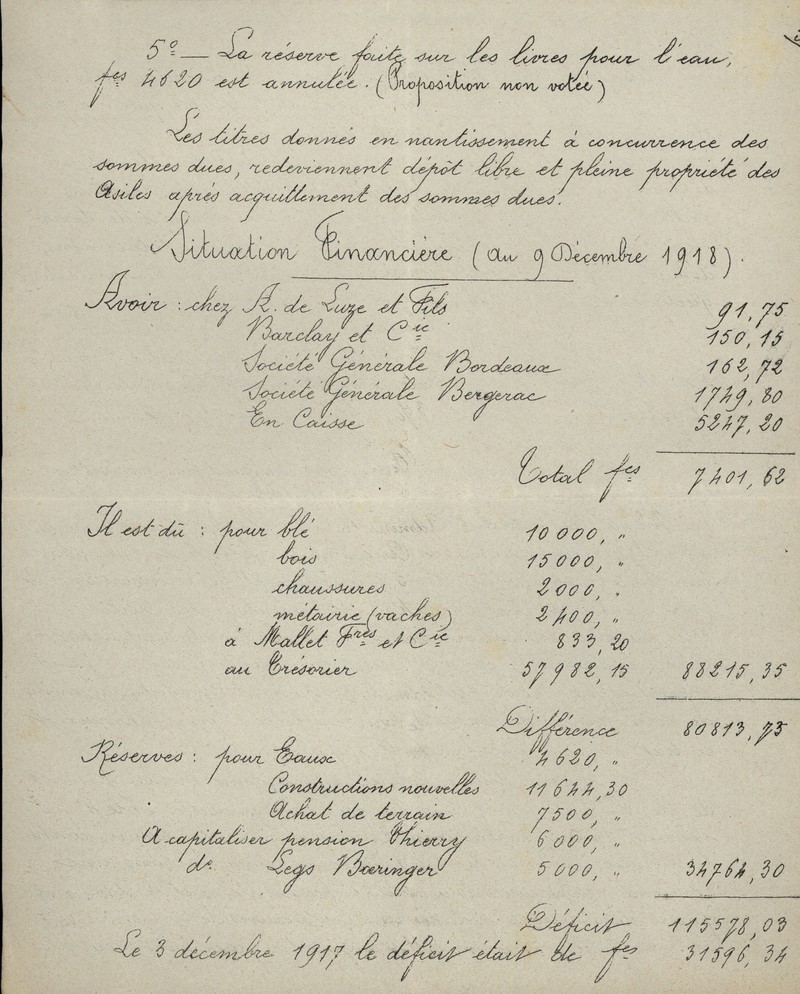 5º — La réserve faite sur les livres pour l'eau,
fcs 4620 est annulée. (Proposition non votée)
Les titres donnés en nantissement à concurrence des
sommes dues, redeviennent dépôt libre et pleine propriété des
Asiles après acquittement des sommes dues.
Situation Financière (au 9 Décembre 1918).
Avoir : chez A. de Luze et Fils 91,75
Barclay et Cie 150,15
Société Générale Bordeaux 162,72
Société Générale Bergerac 1749,80
En Caisse 5247,20
Total fcs 7401,62
Il est dû : pour blé 10000, "
bois 15000, "
chaussures 2000, "
métairie (vaches) 2400, "
à Mallet Frès et Cie 833,20
au Trésorier 57982,15 88215,35
Différence 80813,73
Réserves : pour Eaux 4620, "
Constructions nouvelles 11644,30
Achat de terrain 7500, "
A capitaliser pension Thierry 6000, "
do Legs Bœringer 5000, " 34764,30
Déficit 115578,03
Le 3 décembre 1917 le déficit était de fcs 31596,34